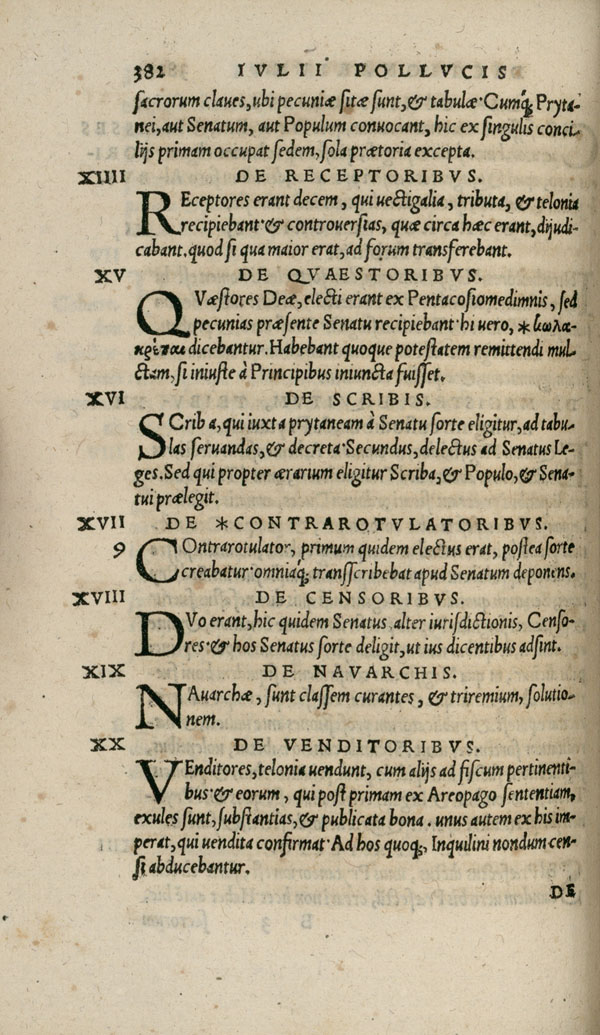 382 IVLII POLLVCIS
sacrorum claues, ubi pecuniæ sitæ sunt, & tabulæ· Cumq́; Pryta-
nei, aut Senatum, aut Populum conuocant, hic ex singulis conci-
lijs primam occupat sedem, sola prætoria excepta.
XIIII DE RECEPTORIBVS.
REceptores erant decem, qui uectigalia, tributa, & telonia
recipiebant· & controuersias, quæ circa hæc erant, dijudi-
cabant. quod si qua maior erat, ad forum transferebant.
XV DE QVAESTORIBVS.
QVæstores Deæ, electi erant ex Pentacosiomedimnis, sed
pecunias præsente Senatu recipiebant· hi uero, * κωλα-
κρέται dicebantur. Habebant quoque potestatem remittendi mul-
ctam, si iniuste à Principibus iniuncta fuisset.
XVI DE SCRIBIS.
SCriba, qui iuxta prytaneam à Senatu sorte eligitur, ad tabu-
las seruandas, & decreta· Secundus, delectus ad Senatus Le-
ges. Sed qui propter ærarium eligitur Scriba, & Populo, & Sena-
tui prælegit.
XVII DE *CONTRAROTVLATORIBVS.
9 COntrarotulator, primum quidem electus erat, postea sorte
creabatur· omniaq́; transscribebat apud Senatum deponens.
XVIII DE CENSORIBVS.
DVo erant, hic quidem Senatus, alter iurisdictionis, Censo-
res· & hos Senatus sorte deligit, ut ius dicentibus adsint.
XIX DE NAVARCHIS.
NAuarchæ, sunt classem curantes, & triremium, solutio-
nem.
XX DE VENDITORIBVS.
VEnditores, telonia uendunt, cum alijs ad fiscum pertinenti-
bus· & eorum, qui post primam ex Areopago sententiam,
exules sunt, substantias, & publicata bona. unus autem ex his im-
perat, qui uendita confirmat· Ad hos quoq;, Inquilini nondum cen-
si abducebantur.
DE